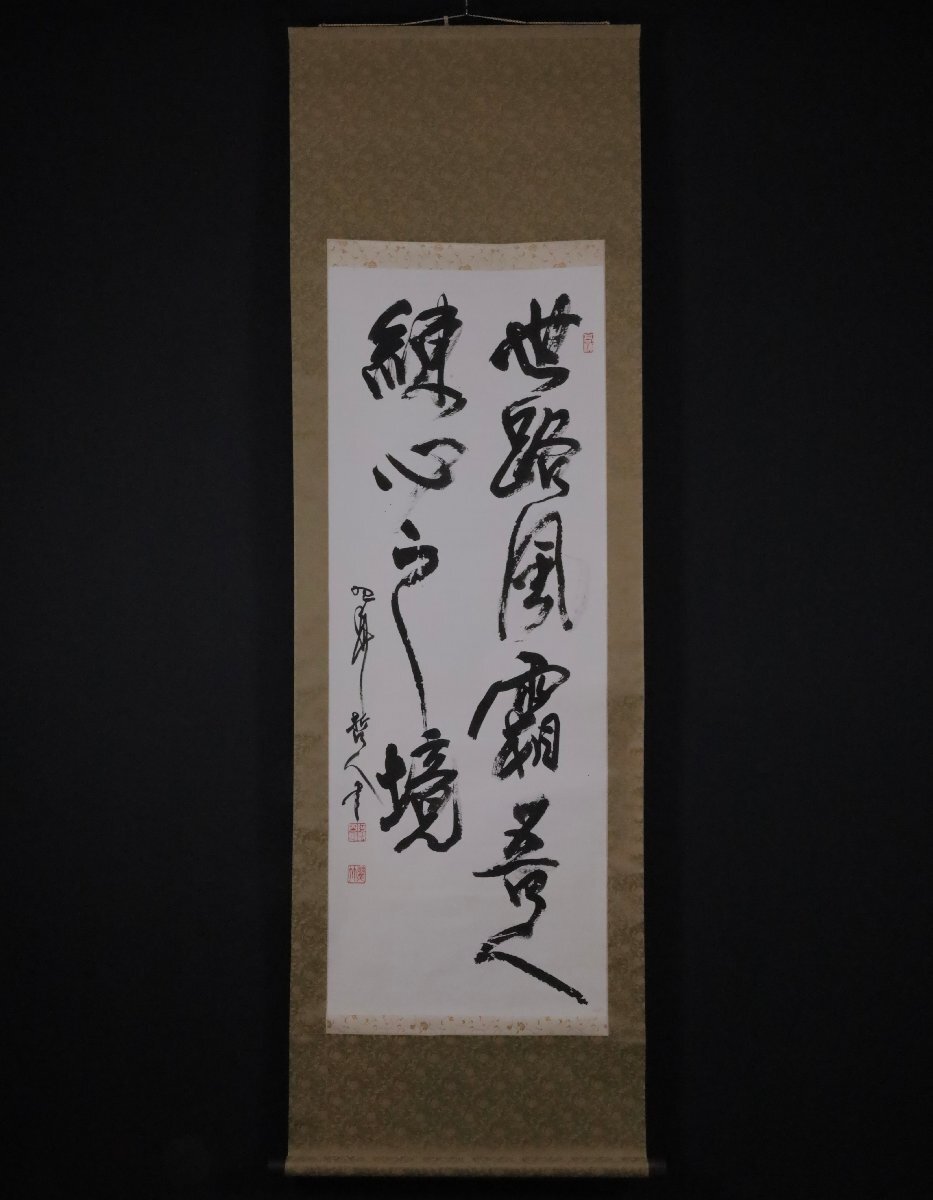 世路風霜吾人
練心之境
哲人書